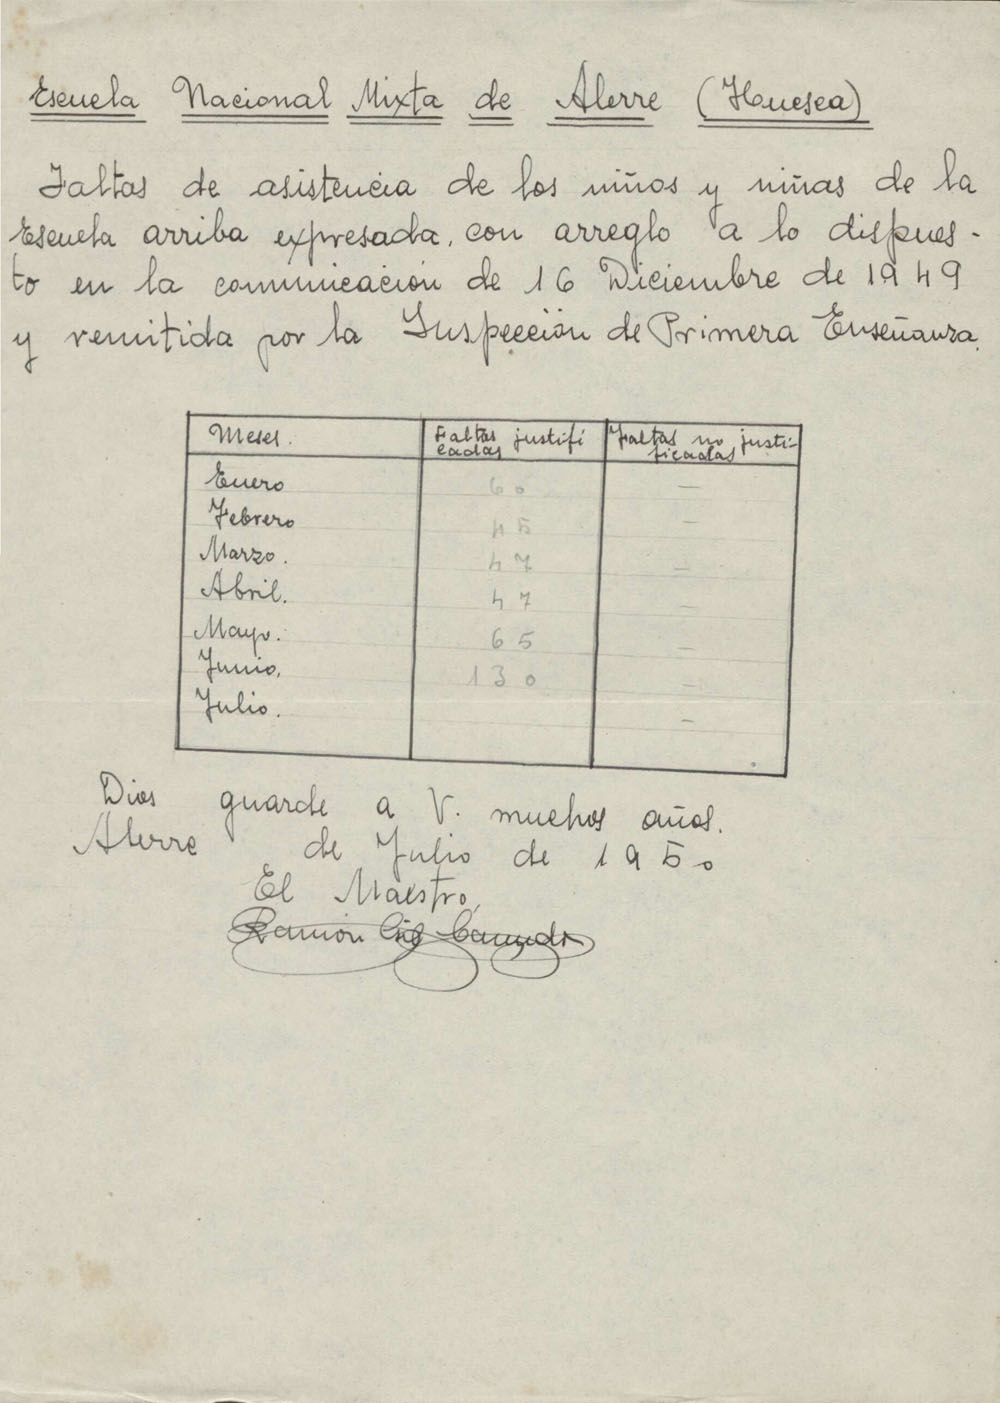 Escuela Nacional Mixta de Alerre (Huesca)
Faltas de asistencia de los niños y niñas de la
Escuela arriba expresada, con arreglo a lo dispues-
to en la comunicación de 16 Diciembre de 1949
y remitida por la Inspección de Primera Enseñanza.
Meses. Faltas justifi Faltas no justi-
cadas ficadas
Enero 60 —
Febrero 45 —
Marzo. 47 —
Abril. 47 —
Mayo. 65 —
Junio. 130 —
Julio. —
Dios guarde a V. muchos años.
Alerre de Julio de 1950
El Maestro,
Ramón Gil